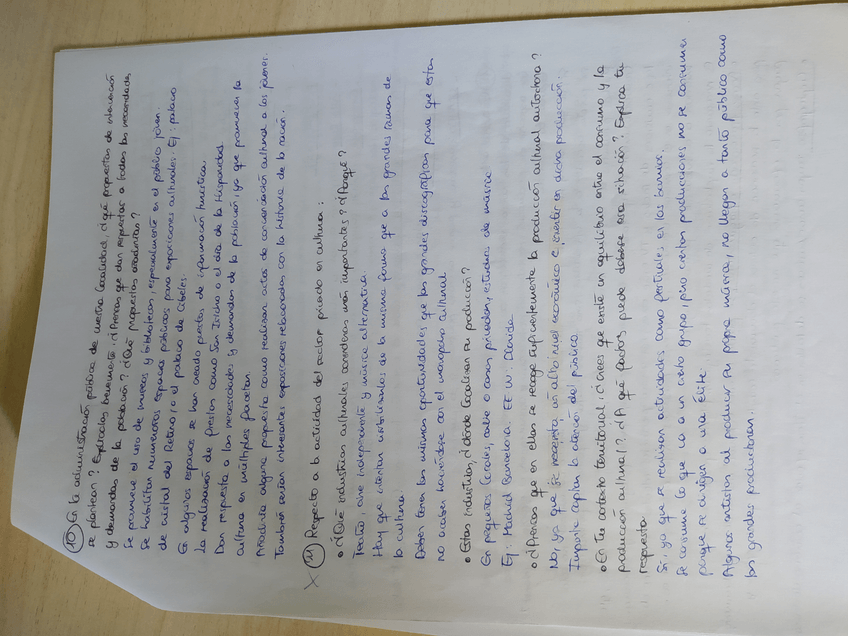 10) En la administración pública de vuestra localidad, ¿qué propuestas de intervención
se plantean? Explícalas brevemente. ¿Piensas que dan respuestas a todas las necesidades
y demandas de la población? ¿Qué propuestas añadirías?
Se promueve el uso de museos y bibliotecas, especialmente en el público joven.
Se habilitan numerosos espacios públicos para exposiciones culturales. Ej: palacio
de cristal del Retiro, o el palacio de Cibeles.
En algunos espacios se han creado puestos de información turística.
La realización de fiestas como San Isidro o el día de la Hispanidad.
Dan respuesta a las necesidades y demandas de la población, ya que promueven la
cultura en múltiples facetas.
Añadiría alguna propuesta como realizar actos de concienciación cultural a los jóvenes.
También serían interesantes exposiciones relacionadas con la historia de la nación.
X 11) Respecto a la actividad del sector privado en cultura:
• ¿Qué industrias culturales consideras más importantes? ¿Porqué?
Teatro, cine independiente y música alternativa.
Hay que intentar visibilizarlas de la misma forma que a las grandes ramas de
la cultura.
Deben tener las mismas oportunidades que las grandes discográficas para que estas
no acaben haciéndose con el monopolio cultural.
• Estas industrias, ¿dónde localizan su producción?
En pequeños locales, salas o casas privadas, estudios de música.
Ej: Madrid, Barcelona. EE UU: Florida.
• ¿Piensas que en ellas se recoge suficientemente la producción cultural autóctona?
No, ya que se necesita un alto nivel económico e invertir en dicha producción.
Importa captar la atención del público.
• En tu contexto territorial, ¿crees que existe un equilibrio entre el consumo y la
producción cultural? ¿A qué factores puede deberse esa situación? Explica tu
respuesta.
Sí, ya que se realizan actividades como festivales en los barrios.
Se consume lo que va a un cierto grupo, pero ciertas producciones no se consumen
porque se dirigen a una Élite.
Algunos artistas al producir su propia música, no llegan a tanto público como
las grandes productoras.